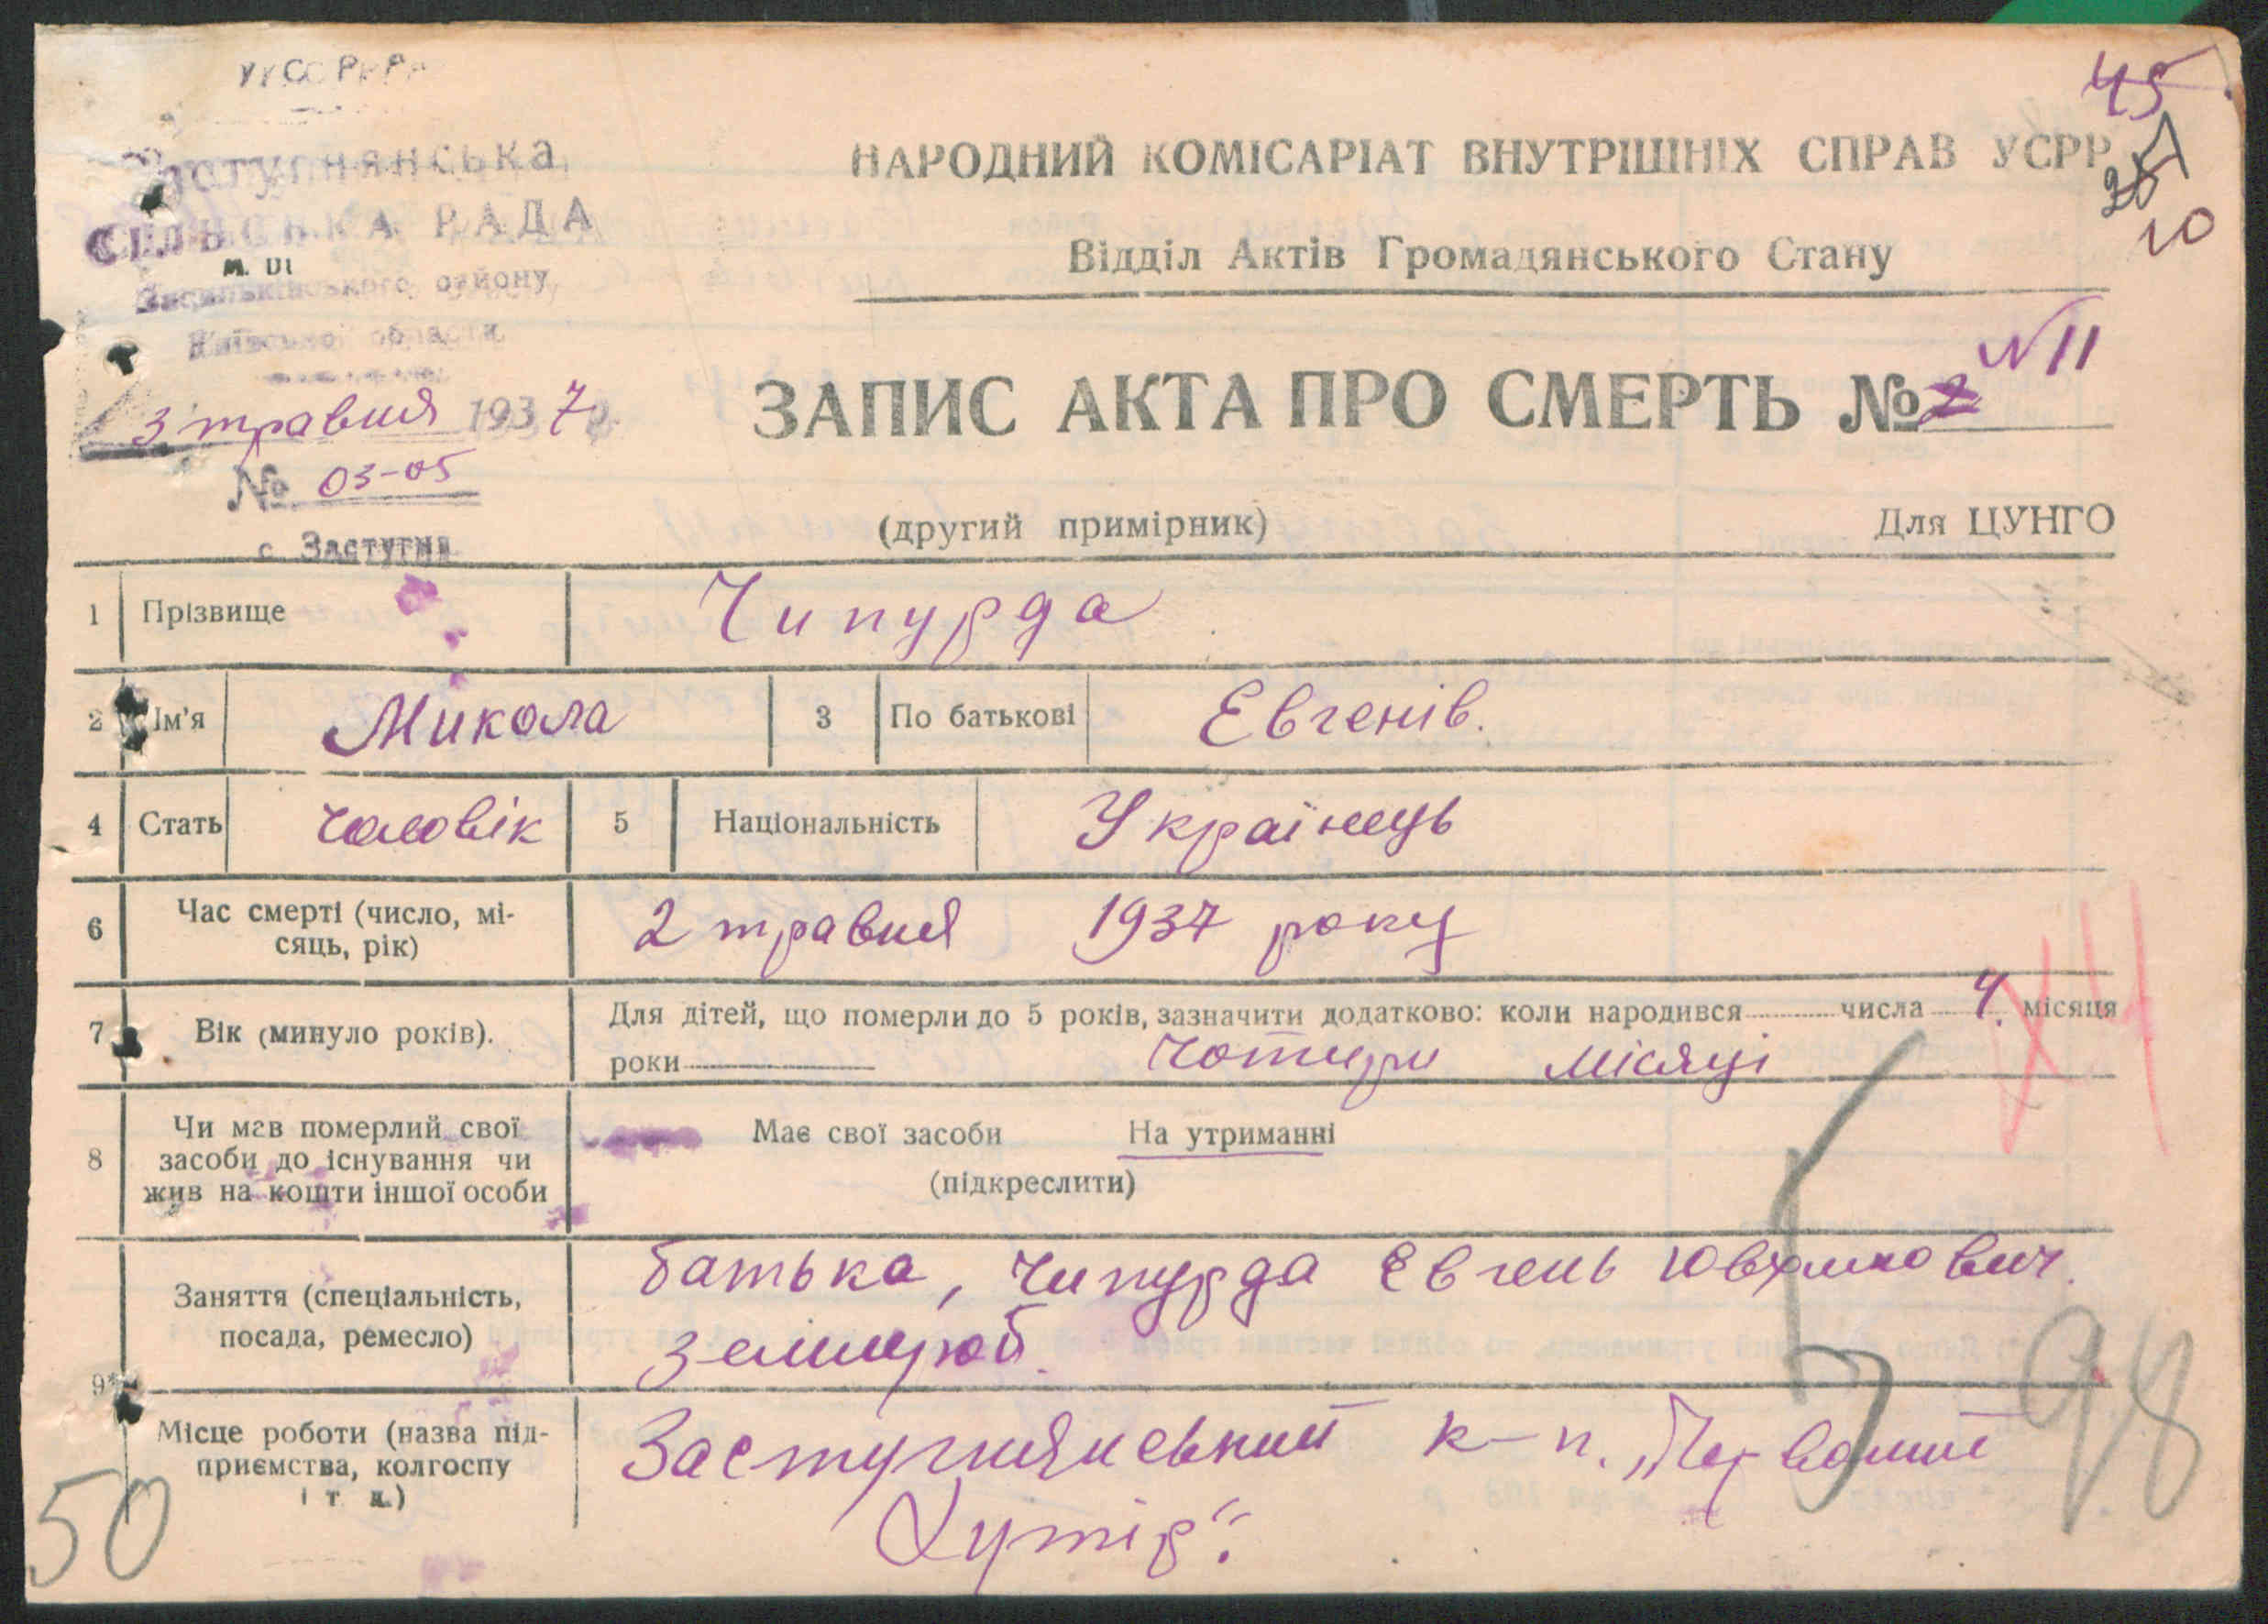 45
НАРОДНИЙ КОМІСАРІАТ ВНУТРІШНІХ СПРАВ УСРР
10
Застугнянська
СІЛЬСЬКА РАДА
Відділ Актів Громадянського Стану
Васильківського району
Київської області
N 11
3 травня 1937 р.
ЗАПИС АКТА ПРО СМЕРТЬ № 2
№ 03-05
(другий примірник)
Для ЦУНГО
с. Застугна
1 Прізвище Чипурда
2 Ім'я Микола 3 По батькові Евгенів.
4 Стать чоловік 5 Національність Українець
6 Час смерті (число, мі-
сяць, рік) 2 травня 1937 року
7 Вік (минуло років). Для дітей, що померли до 5 років, зазначити додатково: коли народився числа 4. місяця
роки чотири місяці
8 Чи мав померлий свої
засоби до існування чи
жив на кошти іншої особи
Має свої засоби На утриманні
(підкреслити)
9* Заняття (спеціальність,
посада, ремесло)
батька, Чипурда Евгень
землероб.
Місце роботи (назва під-
приємства, колгоспу
і т д.)
Застугнянський к-п.
Хутір":
50
98